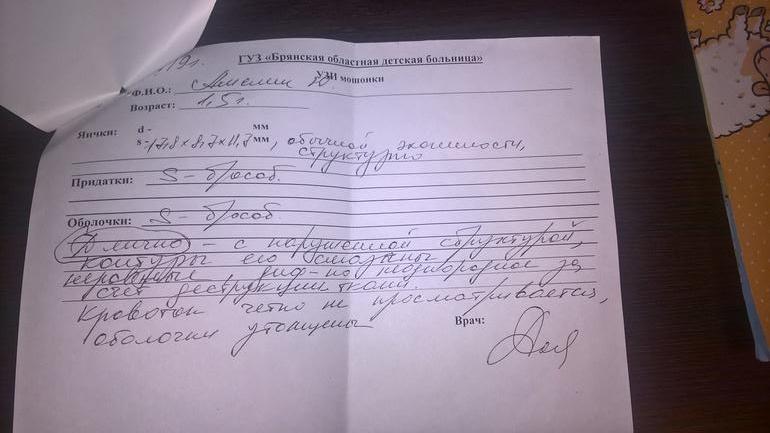 19г.
ГУЗ «Брянская областная детская больница»
УЗИ мошонки
Ф.И.О.: Амелин
Возраст: 1,5 г.
Яички: d - мм
s - 17,8 × 8,7 × 11,7 мм, обычной эхогенности,
структурно
Придатки: S - б/особ.
Оболочки: S - б/особ.
D яичко - с нарушенной структурой,
контуры его смазаны
неровные диф-но неоднородное за
счет деструкции ткани.
Кровоток четко не просматривается,
оболочки утолщены
Врач: